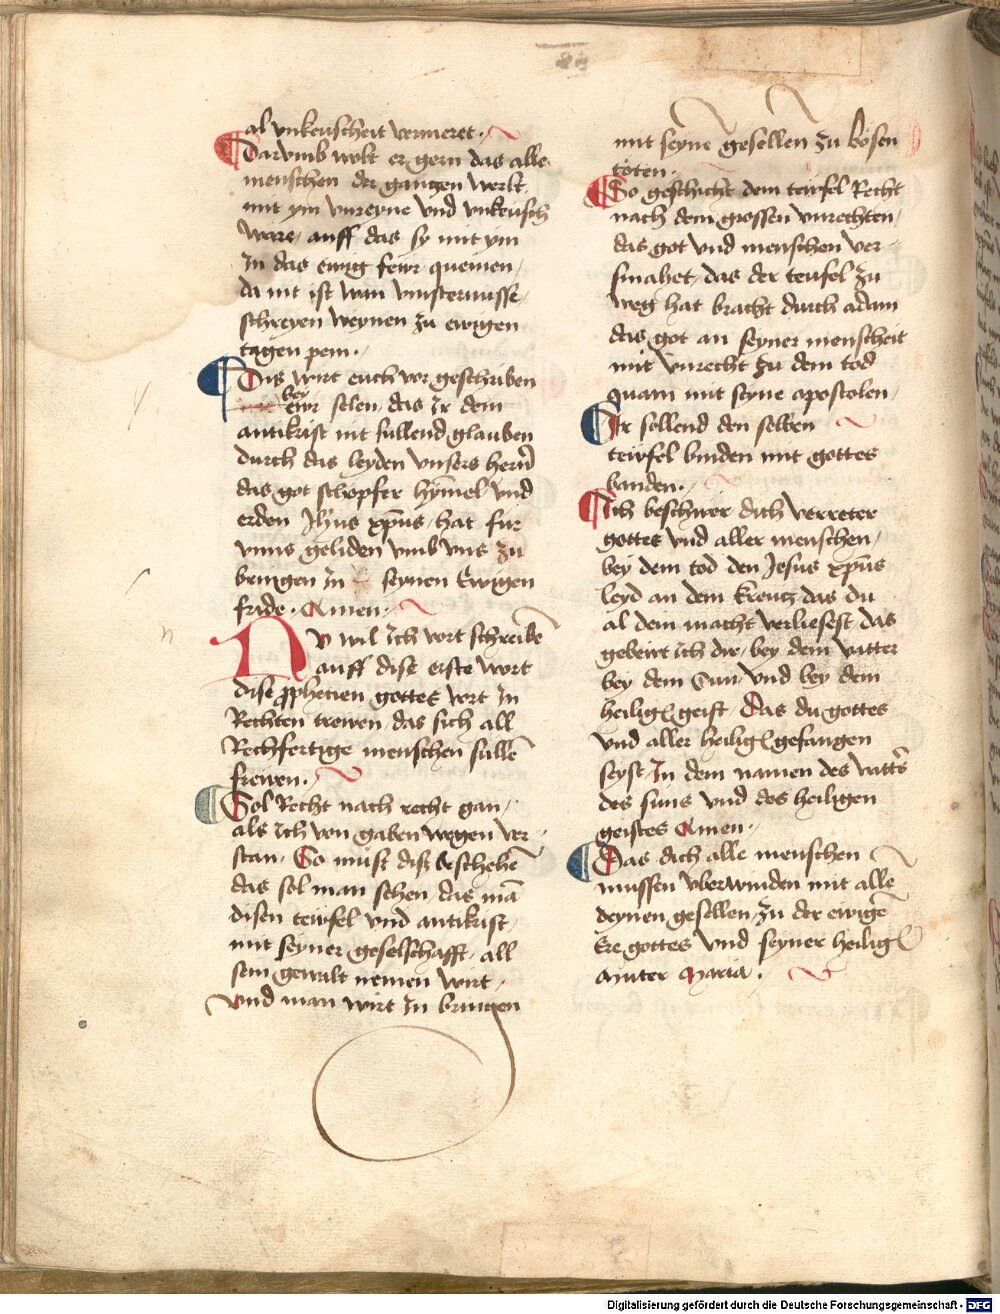 al vnkeuscheit vermeret.
Darvmb wolt er gern das alle
menschen der gantzen werlt
mit ym vnreyne vnd vnkeusch
were, auff das sy mit ym
In das ewig fewr quemen,
da nit ist wan vinsternusse,
schreyen weynen zu ewigen
tagen pein.
Dis wirt euch vor geschriben
bey
ewr selen, das Ir dem
antikrist nit sullend glauben
durch das leyden vnsers hern̄
das got schopfer hymel vnd
erden Jhūs xpūs, hat fur
vnns geliden vmb vns zu
bringen In seynen Ewigen
fride. Amen.
Nv wil Ich vort schreibē
auff dise erste wort
dise prophecien gottes wort In
Rechten trewen, das sich all
Rechfertige menschen sullē
frewen.
Sol Recht nach recht gan,
als Ich von gaben wegen ver
stan. So muß diß beschehē
das sol man sehen, das mā
disen teufel vnd antikrist,
mit seyner geselschafft, all
sein gewalt nemen wirt,
vnd man wirt In bringen
mit seyne gesellen zu bosen
toten.
So geschicht dem teufel Recht
nach dem grossen vnrechten,
das got vnd menschen ver
smahet, das der teufel zu
weg hat bracht durch adam
das got an seyner menscheit
mit vnrecht zu dem tod
quam mit seyne apostolen,
Ir sollend den selben
teufel binden mit gottes
banden.
Ich beschwer dich verreter
gottes vnd aller menschen,
bey dem tod den Jesus xpūs
leyd an dem kreutz das du
al dein macht verliesest das
gebeut ich dir, bey dem vatter
bey dem Sun, vnd bey dem
heilig geist. Das du gottes
vnd aller heilig gefangen
seyst, In dem namen des vatt's
des suns vnd des heiligen
geistes Amen.
Das dich alle menschen
mussen vberwinden mit alle
deynen gesellen, zu der ewigē
Ere gottes vnd seyner heilig
muter Maria.
Digitalisierung gefördert durch die Deutsche Forschungsgemeinschaft - DFG